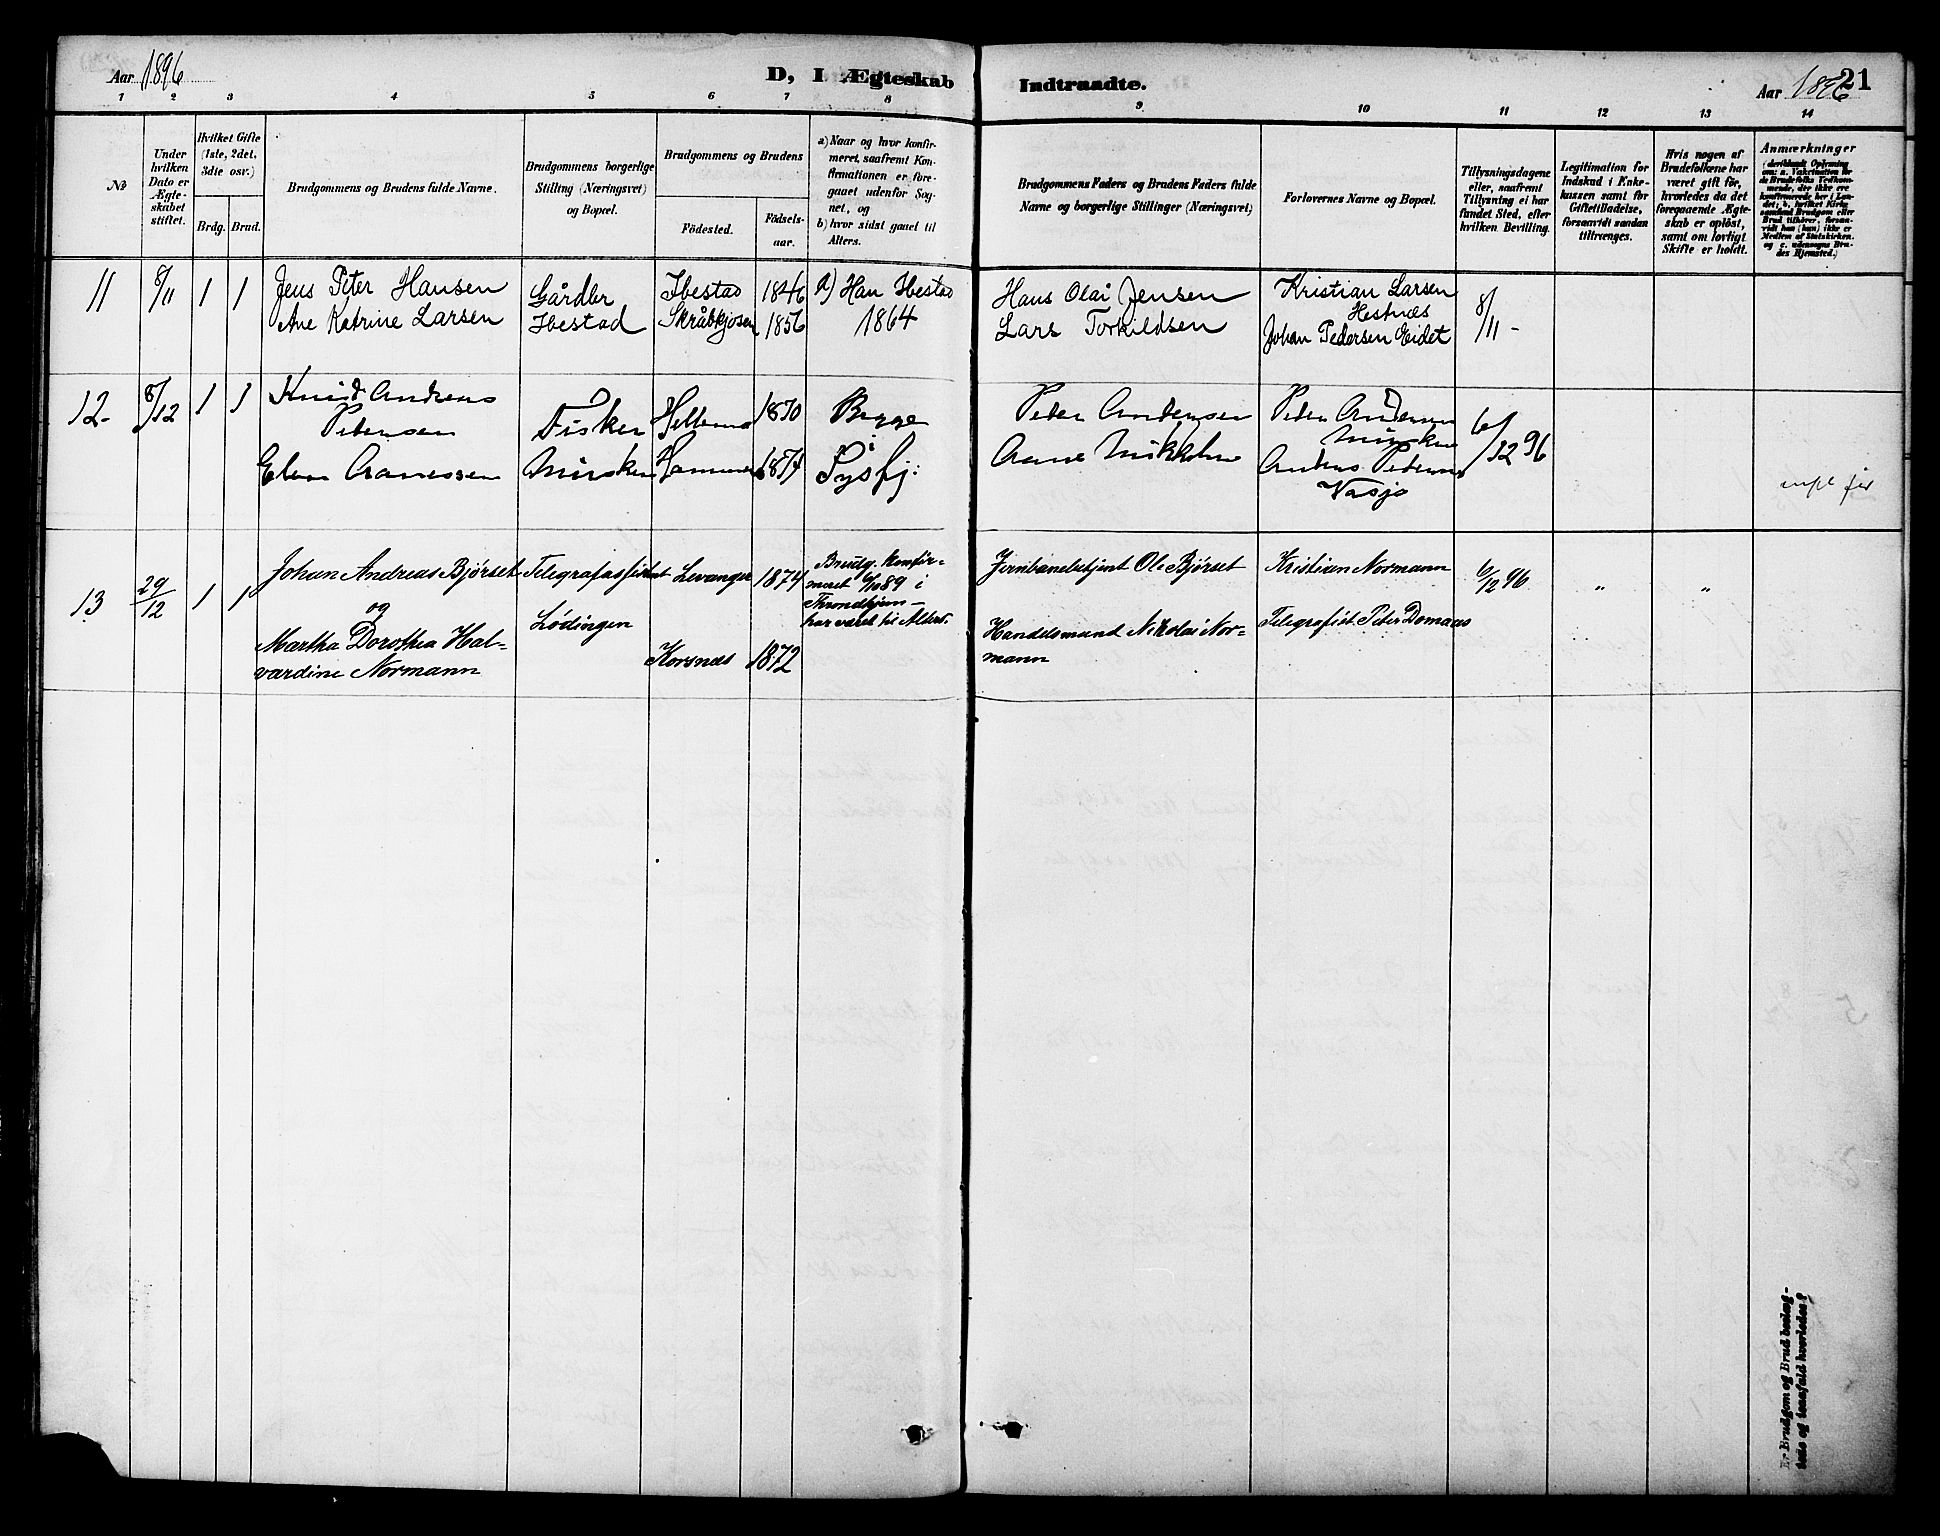 Aar 1896
D, I Ægteskab Indtraadte.
Aar 1896 21
1 2 3 4 5 6 7 8 9 10 11 12 13 14
No
Under hvilken Dato er Ægteskabet stiftet.
Hvilket Gifte (1ste, 2det, 3die osv.)
Brdg. Brud.
Brudgommens og Brudens fulde Navne.
Brudgommens borgerlige Stilling (Næringsvei) og Bopæl.
Brudgommens og Brudens
Födested.
Födselsaar.
a) Naar og hvor konfirmeret, saafremt Konfirmationen er foregaaet udenfor Sognet, og
b) hvor sidst gaaet til Alters.
Brudgommens Faders og Brudens Faders fulde Navne og borgerlige Stillinger (Næringsvei)
Forlovernes Navne og Bopæl.
Tillysningsdagene eller, saafremt Tillysning ei har fundet Sted, efter hvilken Bevilling.
Legitimation for Indskud i Enkekassen samt for Giftetilladelse, forsaavidt saadan tiltrænges.
Hvis nogen af Brudefolkene har været gift för, hvorledes da det foregaaende Ægteskab er oplöst, samt om lovligt Skifte er holdt.
Anmærkninger
11 8/11 1 1
Jens Peter Hansen
Ane Katrine Larsen
Gårdbr
Ibestad
Ibestad 1846
Skråbkjosen 1856
a) Han Ibestad
1864
Hans Olai Jensen
Lars Torkildsen
Kristian Larsen
Hestnæs
Johan Pedersen Eidet
8/11 -
12- 8/12 1 1
Knud Andreas
Petersen
Elen
Fisker
1870
1874
Begge
i
Tysfj:
Peder Andersen
Peder Andersen
Anders Pedersen
6/12 96
13 29/12 1 1
Johan Andreas Bjørset
og
Martha Dorothea Halvardine Normann
Telegrafassistent
Lødingen
Levanger 1874
Korsnes 1872
Brudg. konfirmeret 6/10 89 i
Throndhjem —
har været til Alters.
Jernbanebetjent Ole Bjørset
Handelsmand Nikolai Normann
Kristian Normann
Telegrafist Peter Domaas
6/12 96
" "
Er Brudgom og Brud beslægtede og isaafald hvorledes?